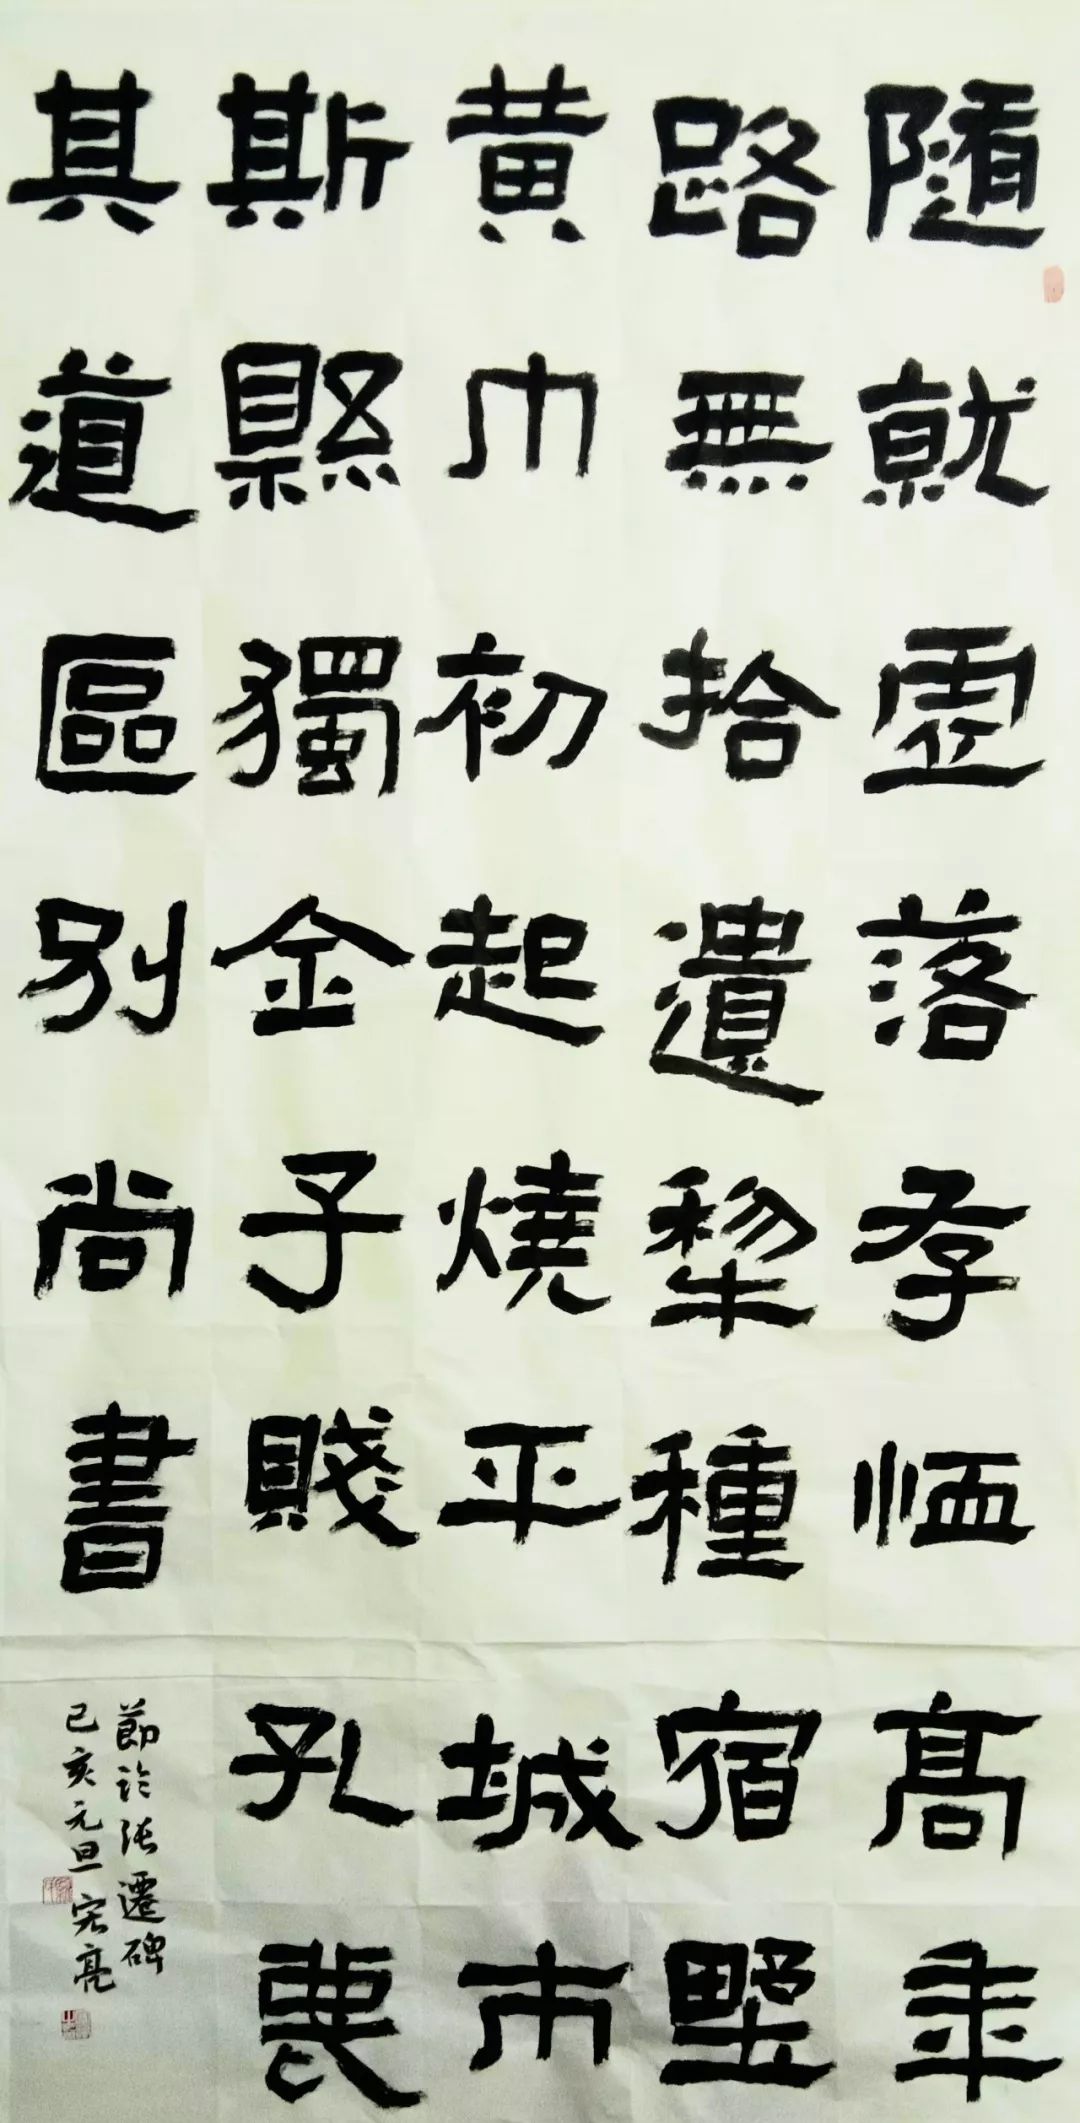 随就虚落存恤高年
路無拾遺犁種宿野
黄巾初起燒平城市
斯縣獨金子賤孔蔑
其道區別尚書
節臨張遷碑
己亥元旦宏亮